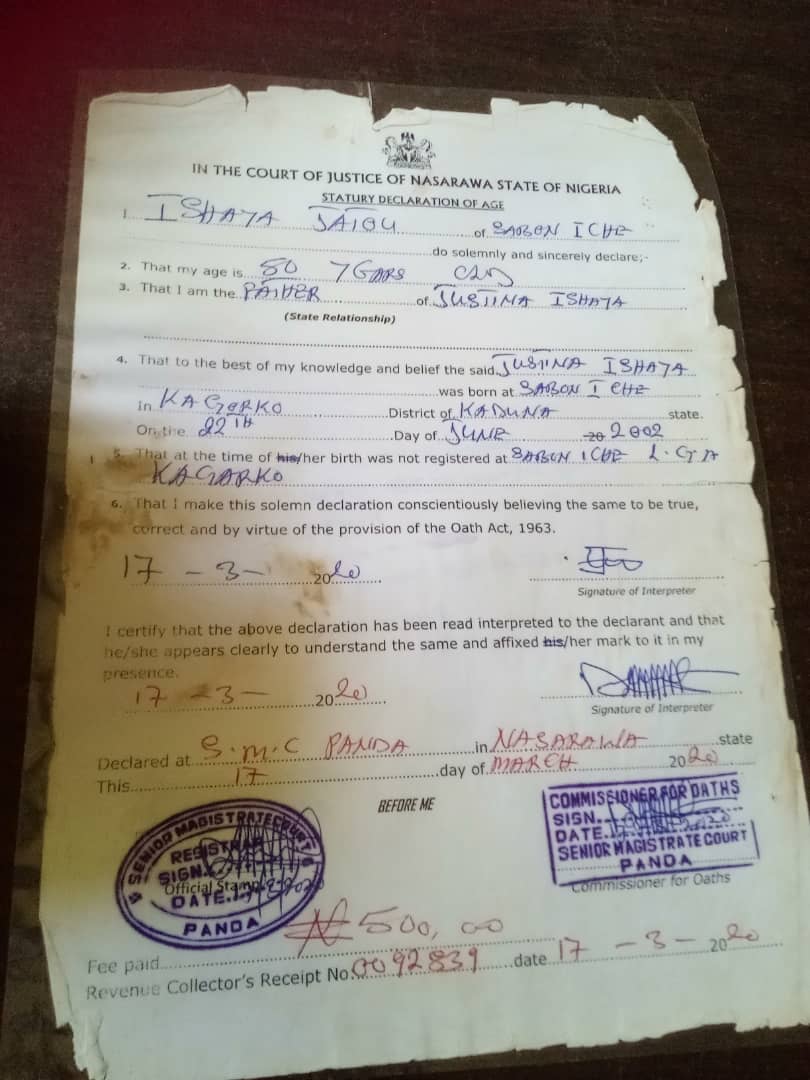 IN THE COURT OF JUSTICE OF NASARAWA STATE OF NIGERIA
STATURY DECLARATION OF AGE
1. ISHAYA JAIOU of SABON ICHE
do solemnly and sincerely declare;-
2. That my age is 50 YEARS OLD
3. That I am the FATHER of JUSTINA ISHAYA
(State Relationship)
4. That to the best of my knowledge and belief the said JUSTINA ISHAYA
was born at SABON ICHE
In KAGERKO District of KADUNA state.
On the 22TH Day of JUNE 20 2002
5. That at the time of his/her birth was not registered at SABON ICHE L.G.A
KAGARKO
6. That I make this solemn declaration conscientiously believing the same to be true,
correct and by virtue of the provision of the Oath Act, 1963.
17 - 3 - 2020
Signature of Interpreter
I certify that the above declaration has been read interpreted to the declarant and that
he/she appears clearly to understand the same and affixed his/her mark to it in my
presence.
17 - 3 - 2020
Signature of Interpreter
Declared at S.M.C PANDA in NASARAWA state
This 17 day of MARCH 2020
BEFORE ME
SENIOR MAGISTRATE COURT
REGISTRAR
SIGN.
Official Stamp
DATE.
PANDA
COMMISSIONER FOR OATHS
SIGN.
DATE.
SENIOR MAGISTRATE COURT
PANDA
Commissioner for Oaths
₦500,00
Fee paid
Revenue Collector's Receipt No. 0092839 date 17 - 3 - 2020